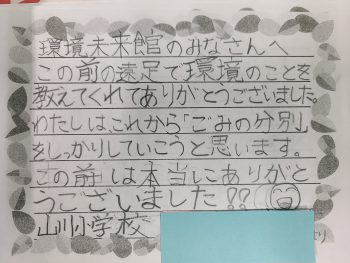 環境未来館のみなさんへ
この前の遠足で環境のことを
教えてくれてありがとうございました。
わたしは、これから「ごみの分別」
をしっかりしていこうと思います。
この前は本当にありがと
うございました!!
山川小学校
より